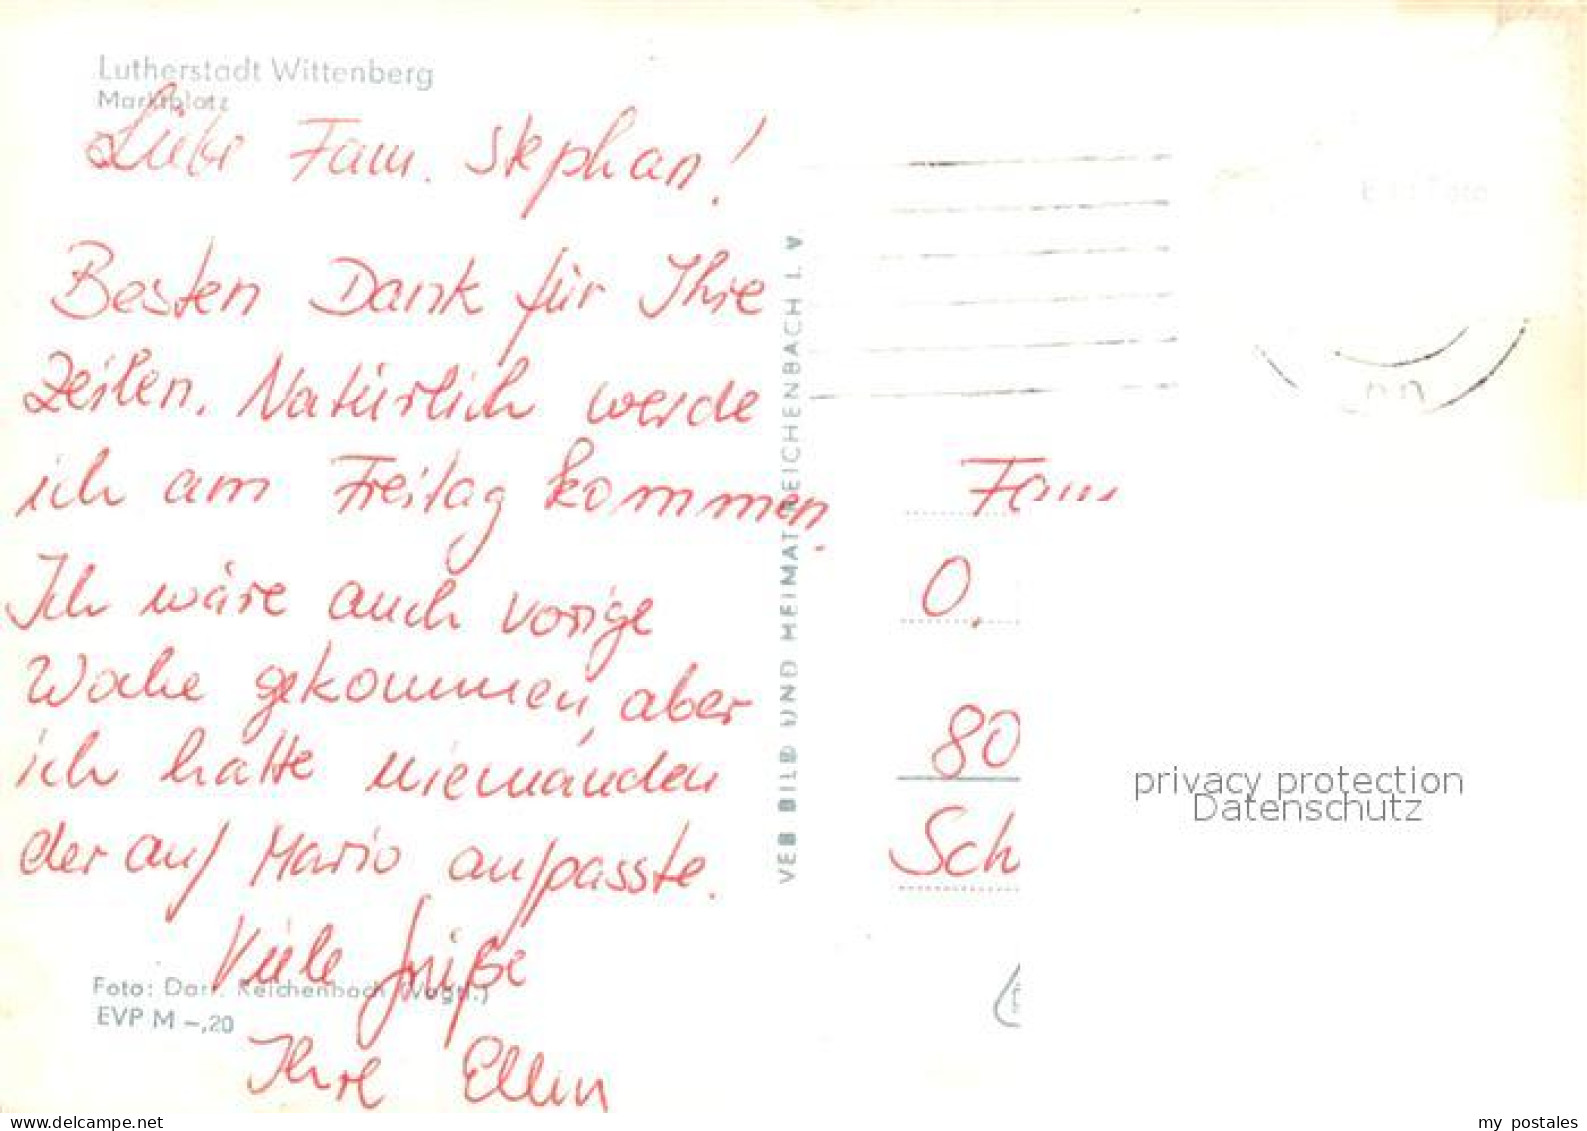 Lutherstadt Wittenberg
Marktplatz
Liebe Fam. Stephan!
Besten Dank für Ihre
Zeilen. Natürlich werde
ich am Freitag kommen.
Ich wäre auch vorige
Woche gekommen, aber
ich hatte niemanden
der auf Mario aufpasste.
Viele Grüße
Ihre Ellen
Foto: Darr, Reichenbach (Vogtl.)
EVP M –,20
VEB BILD UND HEIMAT REICHENBACH I. V.
Fam
O.
80
Sch
privacy protection
Datenschutz
www.delcampe.net
my_postales